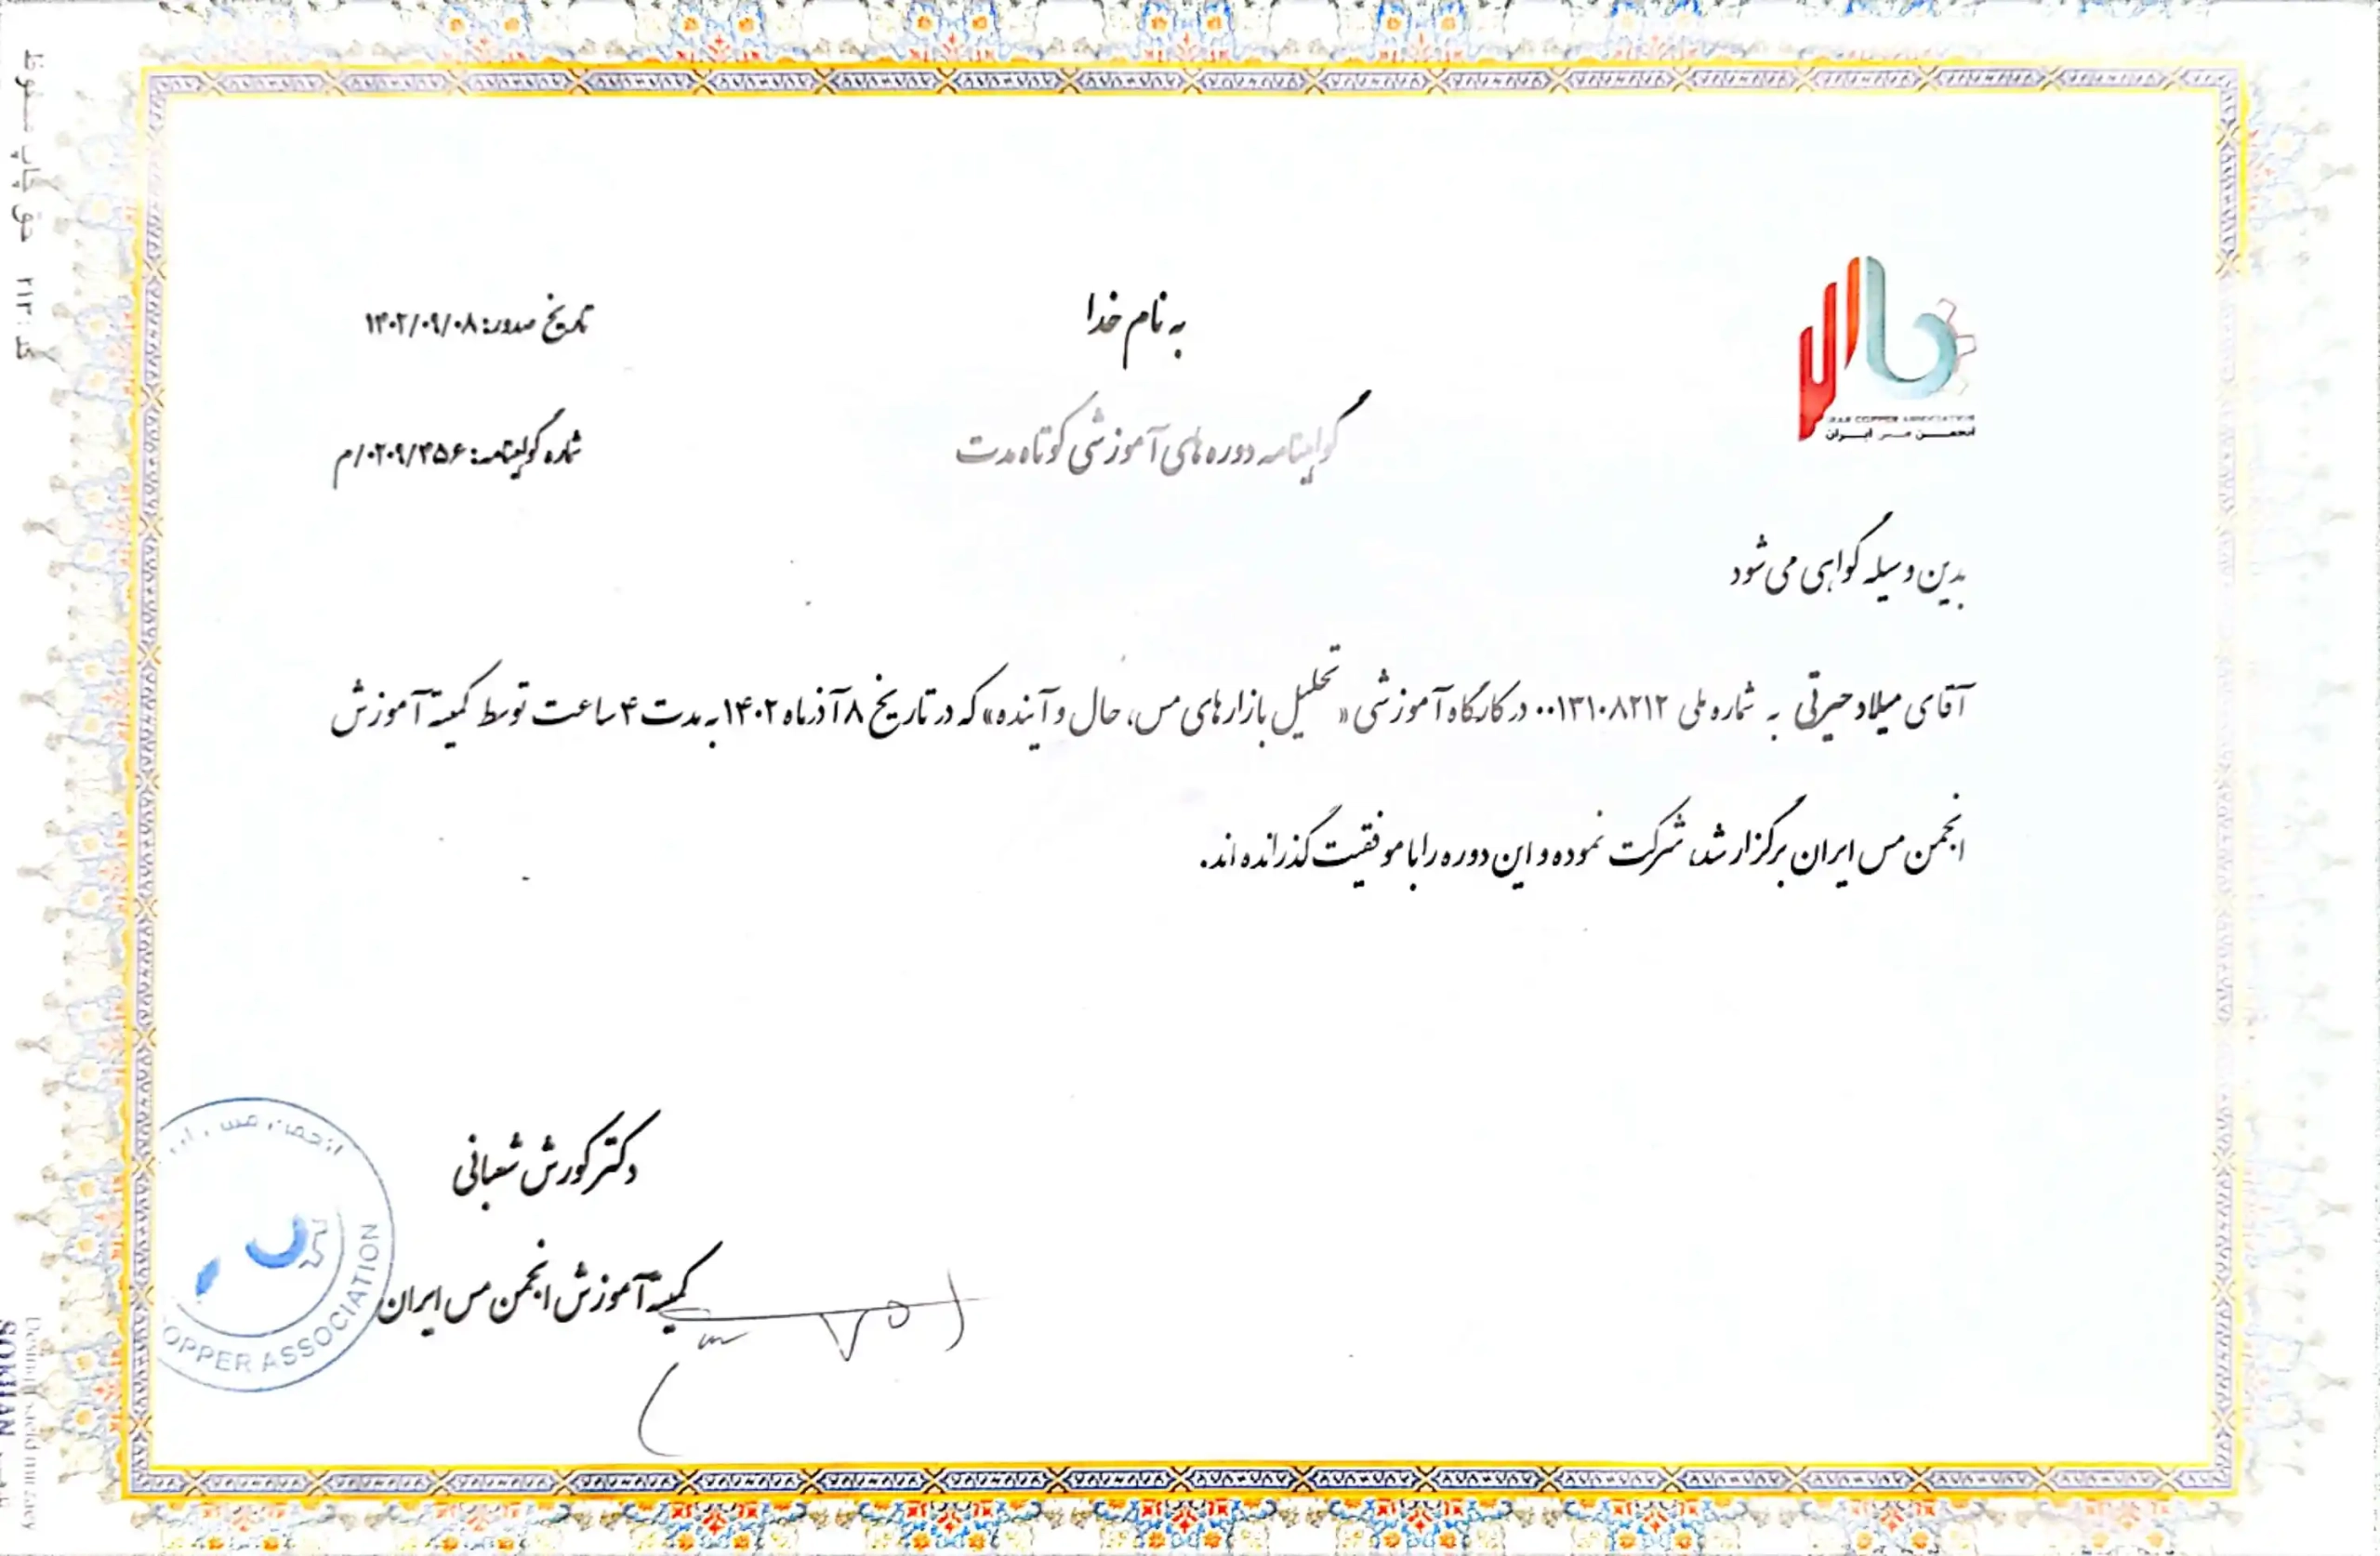 به نام خدا
تاریخ صدور: ۱۴۰۲/۰۹/۰۸
گواهینامه دوره های آموزشی کوتاه مدت
شماره گواهینامه: ۰۲۰۹/۴۵۶/م
IRAN COPPER ASSOCIATION
انجمن مس ایران
بدین وسیله گواهی می شود
آقای میلاد حیرتی به شماره ملی ۰۰۱۳۱۰۸۲۱۲ در کارگاه آموزشی « تحلیل بازارهای مس، حال و آینده» که در تاریخ ۸ آذرماه ۱۴۰۲ به مدت ۴ ساعت توسط کمیته آموزش
انجمن مس ایران برگزار شد، شرکت نموده و این دوره را با موفقیت گذرانده اند.
دکتر کورش شعبانی
کمیته آموزش انجمن مس ایران
انجمن مس
OPPER ASSOCIATION
حق چاپ محفوظ